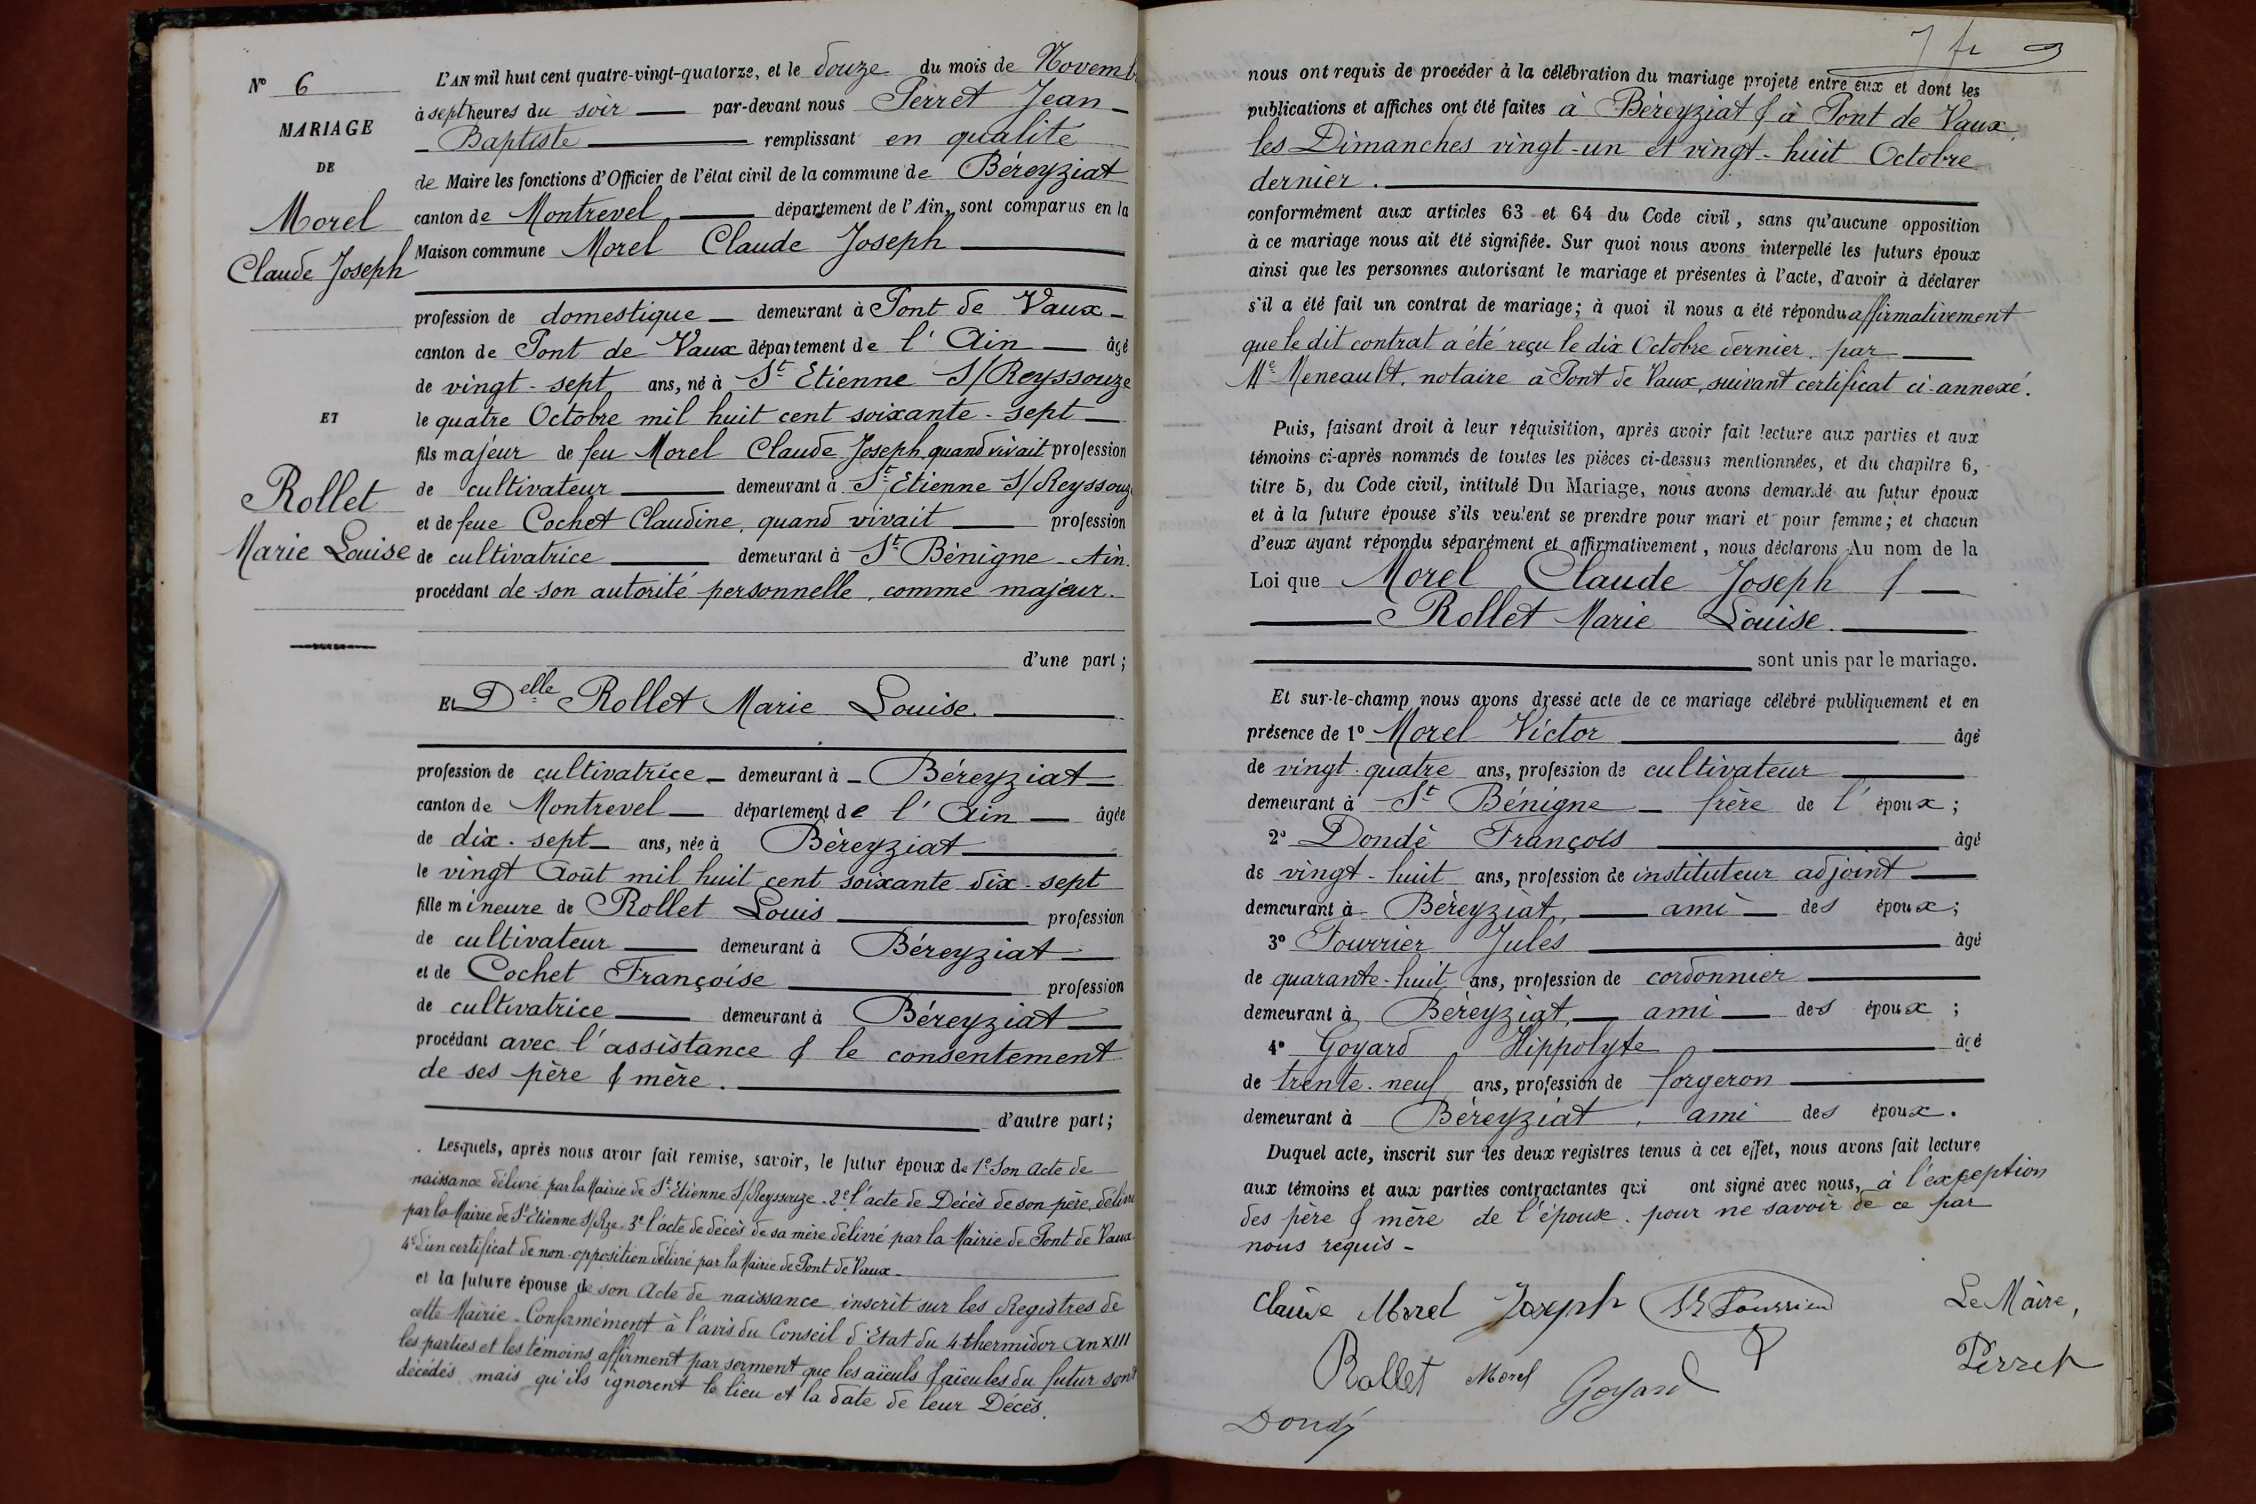 Nº 6
MARIAGE
DE
Morel
Claude Joseph
ET
Rollet
Marie Louise
L'AN mil huit cent quatre-vingt-quatorze, et le douze du mois de Novemb
à sept heures du soir par-devant nous Perret Jean-
-Baptiste remplissant en qualité
de Maire les fonctions d'Officier de l'état civil de la commune de Béreyziat
canton de Montrevel département de l'Ain, sont comparus en la
Maison commune Morel Claude Joseph
profession de domestique demeurant à Pont de Vaux
canton de Pont de Vaux département de l'Ain âgé
de vingt-sept ans, né à St Etienne S/Reyssouze
le quatre Octobre mil huit cent soixante-sept
fils majeur de feu Morel Claude Joseph quand vivait profession
de cultivateur demeurant à St Etienne S/Reyssouz
et de feue Cochet Claudine, quand vivait profession
de cultivatrice demeurant à St Bénigne - Ain.
procédant de son autorité personnelle, comme majeur.
d'une part;
Et Delle Rollet Marie Louise.
profession de cultivatrice demeurant à Béreyziat
canton de Montrevel département de l'Ain âgée
de dix-sept ans, née à Béreyziat
le vingt Août mil huit cent soixante dix-sept
fille mineure de Rollet Louis profession
de cultivateur demeurant à Béreyziat
et de Cochet Françoise profession
de cultivatrice demeurant à Béreyziat
procédant avec l'assistance & le consentement
de ses père & mère.
d'autre part;
Lesquels, après nous avoir fait remise, savoir, le futur époux de 1º Son Acte de
naissance délivré par la Mairie de St Etienne S/Reyssouze - 2º l'acte de Décès de son père, délivré
par la Mairie de St Etienne S/Rze - 3º l'acte de décès de sa mère délivré par la Mairie de Pont de Vaux
4º d'un certificat de non-opposition délivré par la Mairie de Pont de Vaux
et la future épouse de son Acte de naissance inscrit sur les Registres de
cette Mairie - Conformément à l'avis du Conseil d'Etat du 4 thermidor An XIII
les parties et les témoins affirment par serment que les aïeuls & aïeules du futur sont
décédés mais qu'ils ignorent le lieu et la date de leur Décès.
nous ont requis de procéder à la célébration du mariage projeté entre eux et dont les
publications et affiches ont été faites à Béreyziat & à Pont de Vaux
les Dimanches vingt-un et vingt-huit Octobre
dernier.
conformément aux articles 63 et 64 du Code civil, sans qu'aucune opposition
à ce mariage nous ait été signifiée. Sur quoi nous avons interpellé les futurs époux
ainsi que les personnes autorisant le mariage et présentes à l'acte, d'avoir à déclarer
s'il a été fait un contrat de mariage; à quoi il nous a été répondu affirmativement
que le dit contrat a été reçu le dix Octobre dernier, par
Me Meneault, notaire à Pont de Vaux, suivant certificat ci-annexé.
Puis, faisant droit à leur réquisition, après avoir fait lecture aux parties et aux
témoins ci-après nommés de toutes les pièces ci-dessus mentionnées, et du chapitre 6,
titre 5, du Code civil, intitulé Du Mariage, nous avons demandé au futur époux
et à la future épouse s'ils veulent se prendre pour mari et pour femme; et chacun
d'eux ayant répondu séparément et affirmativement, nous déclarons Au nom de la
Loi que Morel Claude Joseph &
Rollet Marie Louise
sont unis par le mariage.
Et sur-le-champ nous avons dressé acte de ce mariage célébré publiquement et en
présence de 1º Morel Victor âgé
de vingt-quatre ans, profession de cultivateur
demeurant à St Bénigne - frère de l'époux;
2º Dondé François âgé
de vingt-huit ans, profession de instituteur adjoint
demeurant à Béreyziat, ami des époux;
3º Fourrier Jules âgé
de quarante-huit ans, profession de cordonnier
demeurant à Béreyziat, ami des époux;
4º Goyard Hippolyte âgé
de trente-neuf ans, profession de forgeron
demeurant à Béreyziat, ami des époux.
Duquel acte, inscrit sur les deux registres tenus à cet effet, nous avons fait lecture
aux témoins et aux parties contractantes qui ont signé avec nous, à l'exception
des père & mère de l'épouse pour ne savoir de ce par
nous requis -
Claude Morel Joseph Fourrier Le Maire,
Rollet Morel Goyard Perret
Dondé